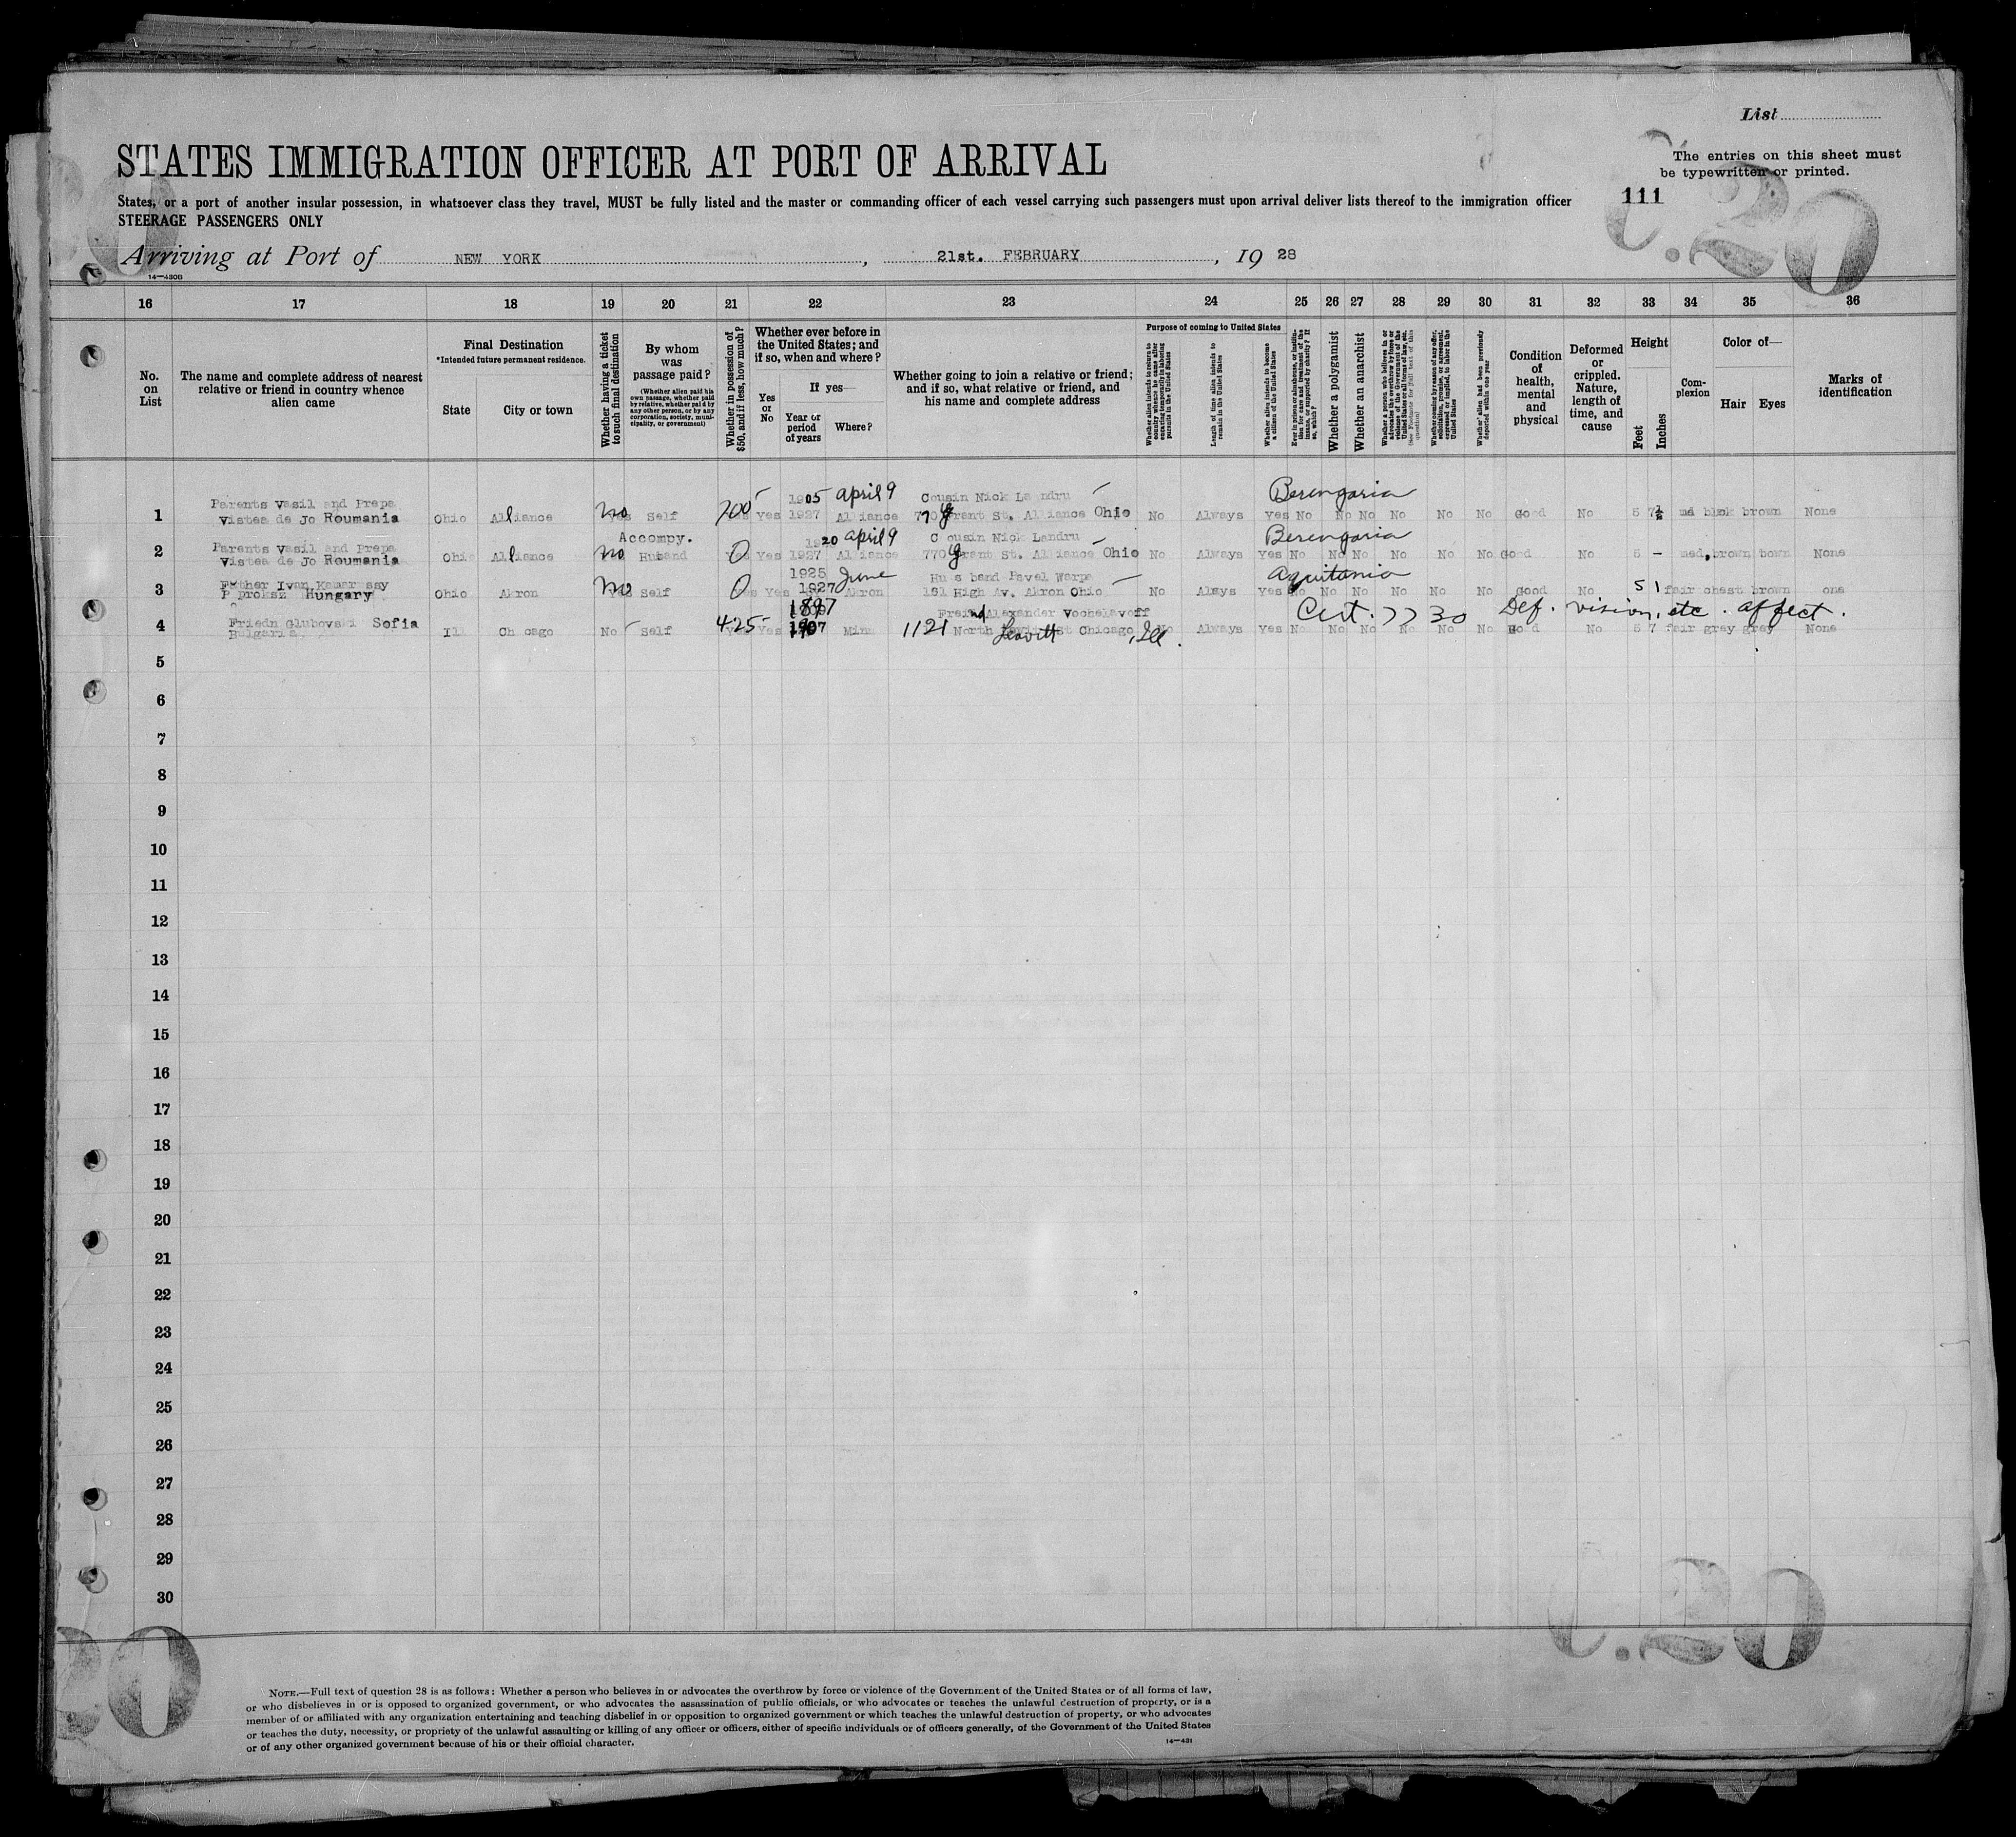 List
STATES IMMIGRATION OFFICER AT PORT OF ARRIVAL
The entries on this sheet must
be typewritten or printed.
111
States, or a port of another insular possession, in whatsoever class they travel, MUST be fully listed and the master or commanding officer of each vessel carrying such passengers must upon arrival deliver lists thereof to the immigration officer
STEERAGE PASSENGERS ONLY
c.20
Arriving at Port of NEW YORK, 21st. FEBRUARY, 1928
14—430B
16 17 18 19 20 21 22 23 24 25 26 27 28 29 30 31 32 33 34 35 36
No. on List
The name and complete address of nearest relative or friend in country whence alien came
Final Destination
*Intended future permanent residence.
State
City or town
Whether having a ticket to such final destination
By whom was passage paid?
(Whether alien paid his own passage, whether paid by relative, whether paid by any other person, or by any corporation, society, municipality, or government)
Whether in possession of $50, and if less, how much?
Whether ever before in the United States; and if so, when and where?
Yes or No
If yes—
Year or period of years
Where?
Whether going to join a relative or friend; and if so, what relative or friend, and his name and complete address
Purpose of coming to United States
Whether alien intends to return to country whence he came after engaging temporarily in laboring pursuits in the United States
Length of time alien intends to remain in the United States
Whether alien intends to become a citizen of the United States
Ever in prison or almshouse, or institution for care and treatment of the insane, or supported by charity? If so, which?
Whether a polygamist
Whether an anarchist
Whether a person who believes in or advocates the overthrow by force or violence of the Government of the United States or all forms of law, etc. (see Footnote for full text of this question)
Whether coming by reason of any offer, solicitation, promise, or agreement, expressed or implied, to labor in the United States
Whether alien had been previously deported within one year
Condition of health, mental and physical
Deformed or crippled. Nature, length of time, and cause
Height
Feet
Inches
Complexion
Color of—
Hair
Eyes
Marks of identification
Parents Vasil and Prepa 1905 April 9 Cousin Nick Landru Berengaria
1 Vistea de Jo Roumania Ohio Alliance No Self 200 Yes 1927 Alliance 770 Grant St. Alliance Ohio No Always Yes No No No No No No Good No 5 7½ med black brown None
Accompy.
Parents Vasil and Prepa 20 April 9 Cousin Nick Landru Berengaria
2 Vistea de Jo Roumania Ohio Alliance No Husband 0 Yes 1927 Alliance 770 Grant St. Alliance Ohio No Always Yes No No No No No No Good No 5 — med. brown bown None
Father Ivan 1925 June Husband Pavel Warpa Aquitania
3 Hungary Ohio Akron No Self 0 Yes 1927 Akron 181 High Av. Akron Ohio No Always Yes No No No No No No Good No 5 1 fair chest brown one
Friedn Glubovski Sofia 1897 Freind Alexander Vochelavoff Cert. 7730 Def. vision, etc. affect.
4 Bulgaria. Ill Chicago No Self 425 Yes 1907 Minn 1121 North Leavitt St Chicago, Ill. No Always Yes No No No No No No Good No 5 7 fair gray gray None
5
6
7
8
9
10
11
12
13
14
15
16
17
18
19
20
21
22
23
24
25
26
27
28
29
30
c.20
NOTE.—Full text of question 28 is as follows: Whether a person who believes in or advocates the overthrow by force or violence of the Government of the United States or of all forms of law,
or who disbelieves in or is opposed to organized government, or who advocates the assassination of public officials, or who advocates or teaches the unlawful destruction of property, or is a
member of or affiliated with any organization entertaining and teaching disbelief in or opposition to organized government or which teaches the unlawful destruction of property, or who advocates
or teaches the duty, necessity, or propriety of the unlawful assaulting or killing of any officer or officers, either of specific individuals or of officers generally, of the Government of the United States
or of any other organized government because of his or their official character.
14—431